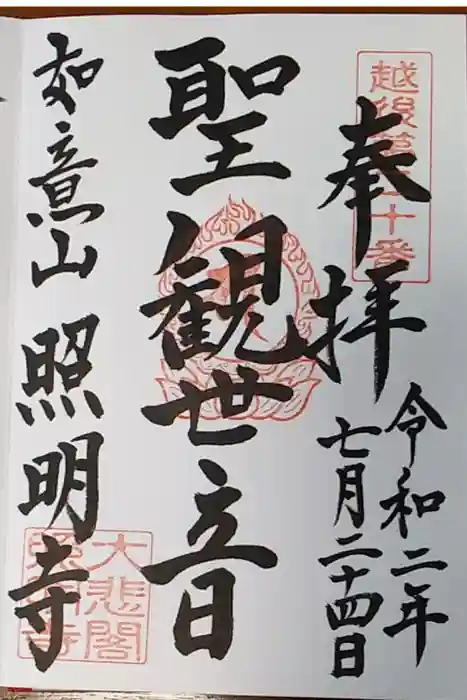 奉拝
令和二年
七月二十四日
聖観世音
如意山 照明寺
大悲閣
照明寺